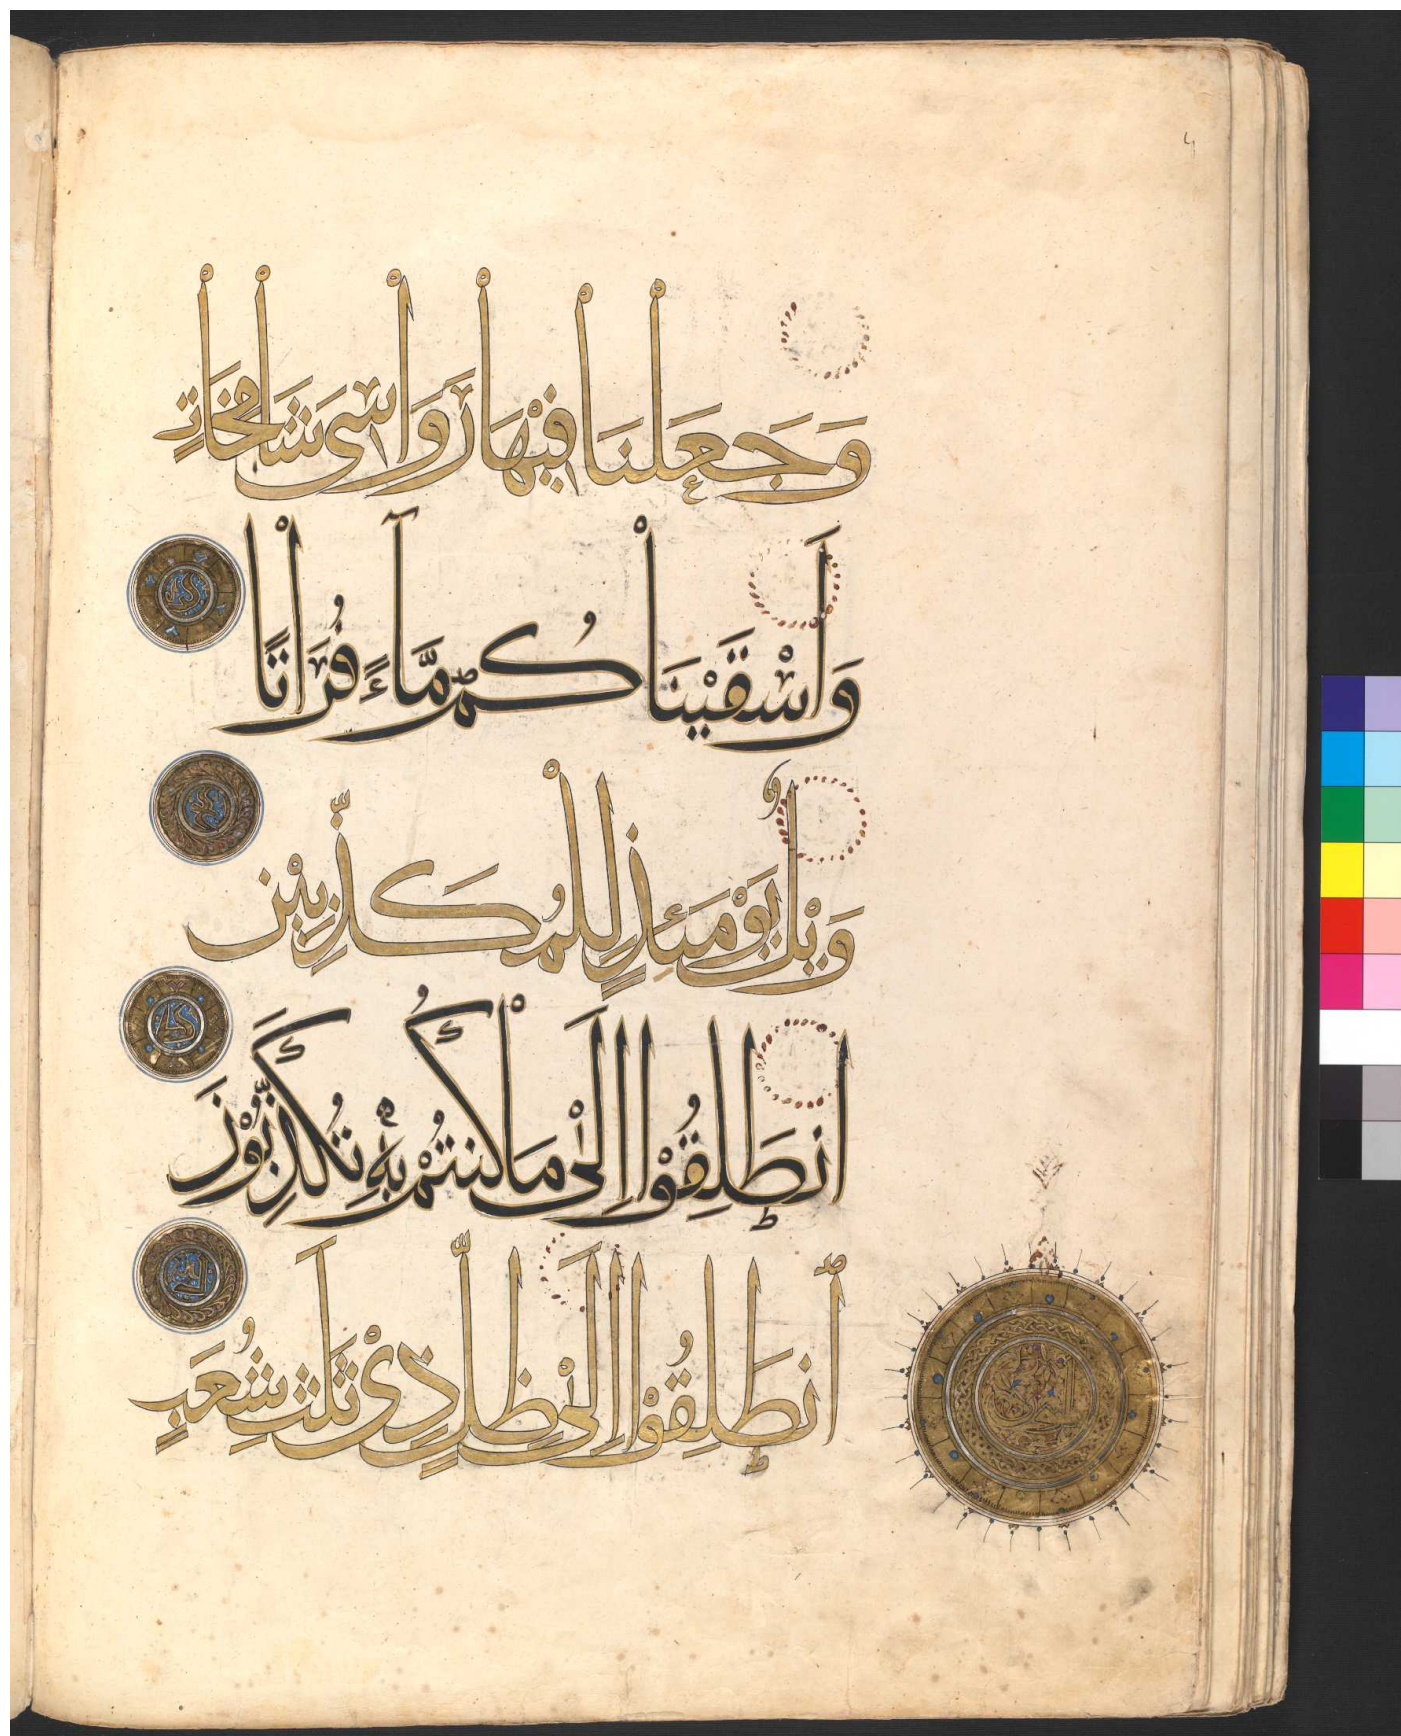 وَجَعَلْنَا فِيْهَا رَوَاسِىَ شَامِخَاتٍ
وَاَسْقَيْنَاكُمْ مَّآءً فُرَاتًا
وَيْلٌ يَوْمَئِذٍ لِلْمُكَذِّبِيْنَ
انطَلِقُوْا اِلَى مَا كُنتُمْ بِهِ تُكَذِّبُوْنَ
انطَلِقُوْا اِلَى ظِلٍّ ذِىْ ثَلَثِ شُعَبٍ